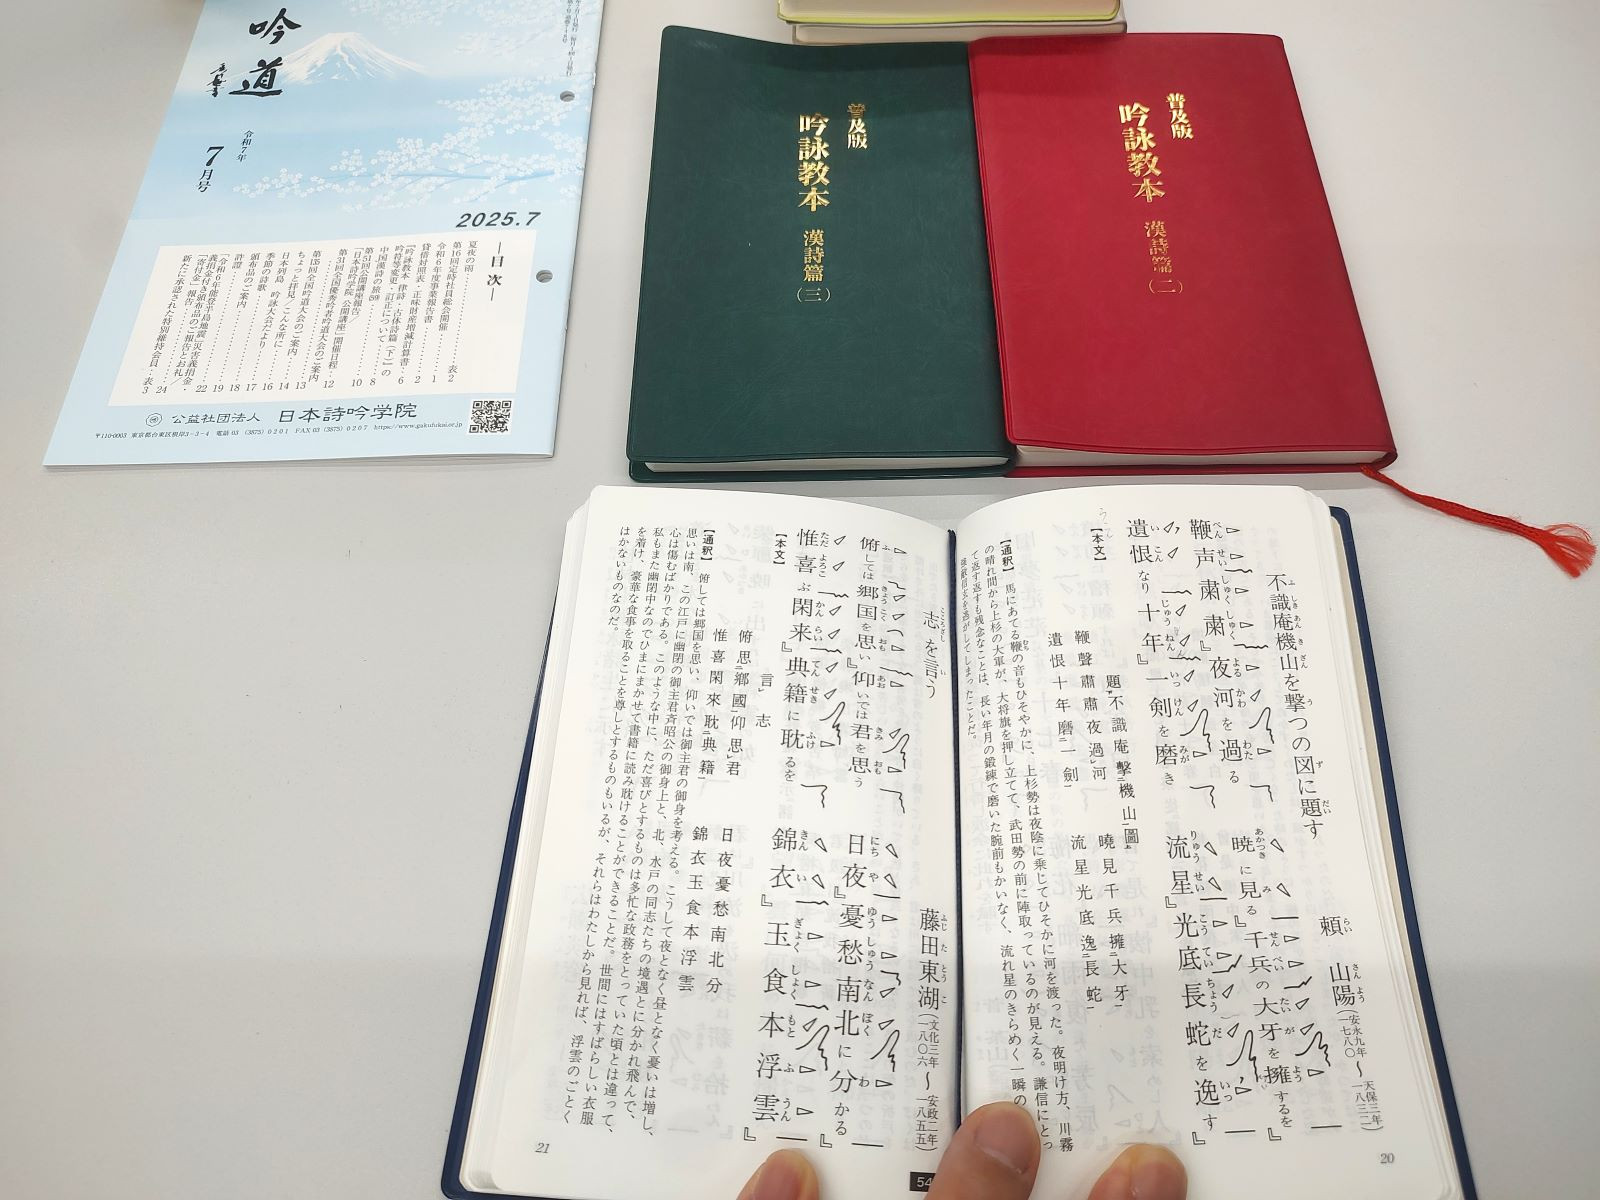 吟道
令和7年
7月号
2025.7
―目次―
夏夜の雨……表2
第16回定時社員総会開催……1
令和6年度事業報告書……2
貸借対照表・正味財産増減計算書……6
『吟詠教本 律詩・古体詩篇(下)』の
吟符等変更・訂正について……8
中国漢詩の旅59
第51回公開講座報告／
「日本詩吟学院 公開講座」開催日程……10
第31回全国優秀吟者吟道大会のご案内……12
第135回全国吟道大会のご案内……13
ちょっと拝見／こんな所に……14
日本列島 吟詠大会だより……16
季節の詩歌……17
頒布品のご案内……18
許證……19
「令和6年能登半島地震」災害義捐金・
義捐金付き頒布品のご報告とお礼／
「寄付金」報告……22
新たに承認された特別維持会員……24
表3
公益社団法人 日本詩吟学院
〒110-0003 東京都台東区根岸3-3-4 電話 03 (3875) 0201 FAX 03 (3875) 0207 https://www.gakufukai.or.jp
普及版
吟詠教本 漢詩篇(三)
普及版
吟詠教本 漢詩篇(二)
不識庵機山を撃つの図に題す
頼 山陽(安永九年～天保三年 一七八〇～一八三二)
鞭声粛粛 夜河を過る
暁に見る 千兵の大牙を擁するを
遺恨なり十年 一剣を磨き
流星光底長蛇を逸す
【本文】
題不識庵擊機山圖
鞭聲肅肅夜過河 曉見千兵擁大牙
遺恨十年磨一劍 流星光底逸長蛇
【通釈】 馬にあてる鞭の音もひそやかに、上杉勢は夜陰に乗じてひそかに河を渡った。夜明け方、川霧
の晴れ間から上杉の大軍が、大将旗を押し立てて、武田勢の前に陣取っているのが見える。謙信にとっ
て返す返すも残念なことは、長い年月の鍛練で磨いた腕前もかいなく、流れ星のきらめく一瞬の
を逃がしてしまったことだ。
20
志を言う
藤田東湖(文化三年～安政二年 一八〇六～一八五五)
俯しては郷国を思い 仰いでは君を思う
日夜憂愁南北に分かる
惟喜ぶ閑来 典籍に耽るを
錦衣 玉食本浮雲
【本文】
言志
俯思鄕國仰思君 日夜憂愁南北分
惟喜閑來耽典籍 錦衣玉食本浮雲
【通釈】 俯しては郷国を思い、仰いでは御主君の御身を考える。こうして夜となく昼となく憂いは増し、
思いは南、この江戸に幽閉の御主君斉昭公の御身上と、北、水戸の同志たちの境遇とに分かれ飛んで、
心は傷むばかりである。このような中に、ただ喜びとするものは多忙な政務をとっていた頃とは違って、
私もまた幽閉中なのでひまにまかせて書籍に読み耽けることができることだ。世間にはすばらしい衣服
を着け、豪華な食事を取ることを尊しとするものもいるが、それらはわたしから見れば、浮雲のごとく
はかないものなのだ。
21
54